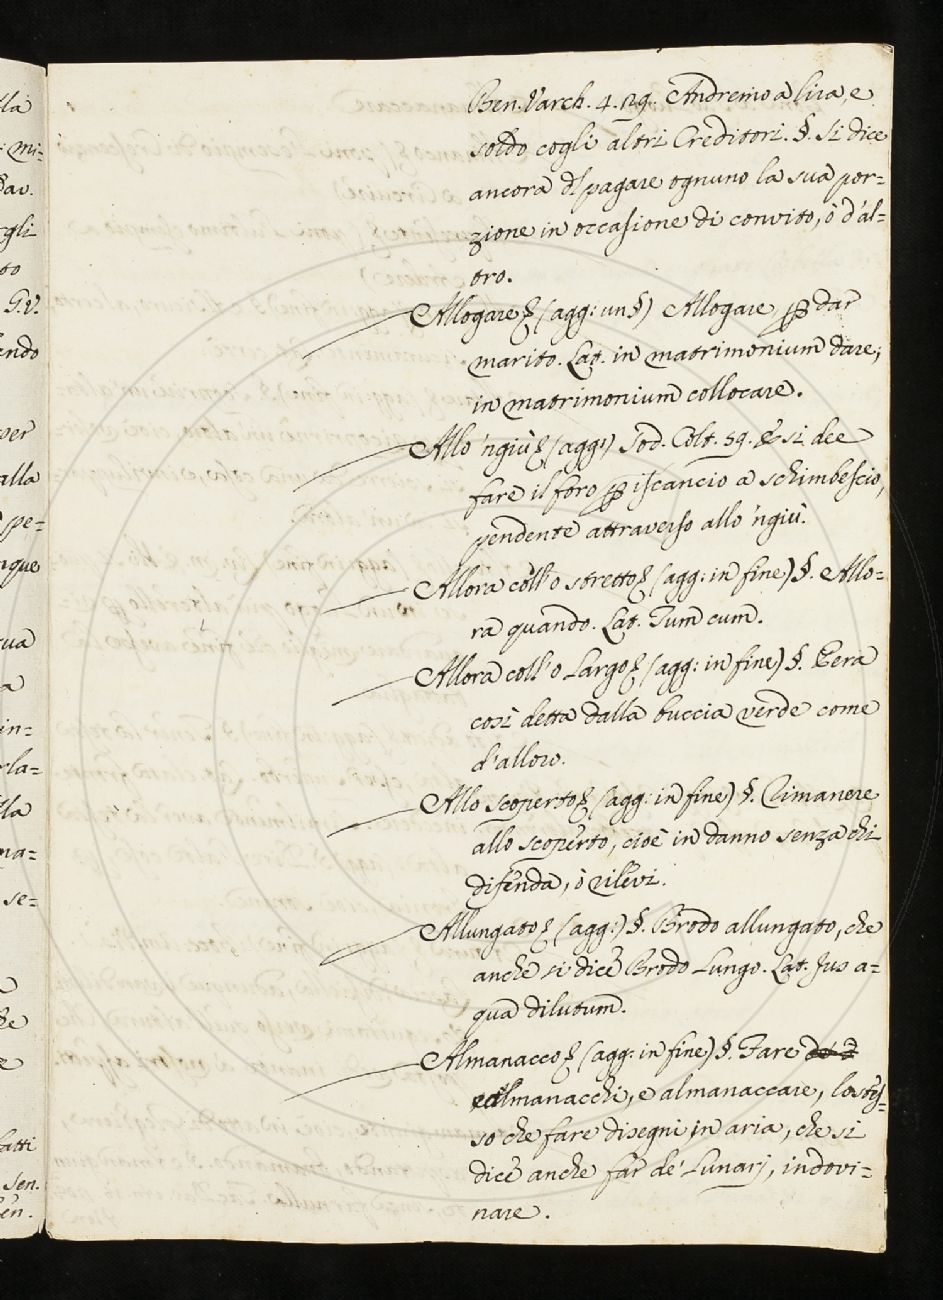 Ben. Varch. 4. 29. Andremo a lira, e
soldo cogli altri Creditori. §. Si dice
ancora di pagare ognuno la sua por=
zione in occasione di convito, ò d'al=
tro.
Allogare (agg: un §) Allogare, p dar
marito. Lat. in matrimonium dare;
in matrimonium collocare.
Allo 'ngiù (agg:) Sod. Colt. 59. E si dee
fare il foro p iscancio a schimbescio,
pendente attraverso allo 'ngiù.
Allora coll'o stretto (agg: in fine) §. Allo=
ra quando. Lat. Tum cum.
Allora coll'o Largo (agg: in fine) §. Pera
così detta dalla buccia verde come
d'alloro.
Allo scoperto (agg: in fine) §. Rimanere
allo scoperto, cioè in danno senza chi
difenda, ò rilevi.
Allungato (agg:) §. Brodo allungato, che
anche si dice Brodo Lungo. Lat. Jus a=
qua dilutum.
Almanacco (agg: in fine) §. Fare
almanacchi, e almanaccare, lo stes=
so che fare disegni in aria, che si
dice anche far de' Lunarj, indovi=
nare.